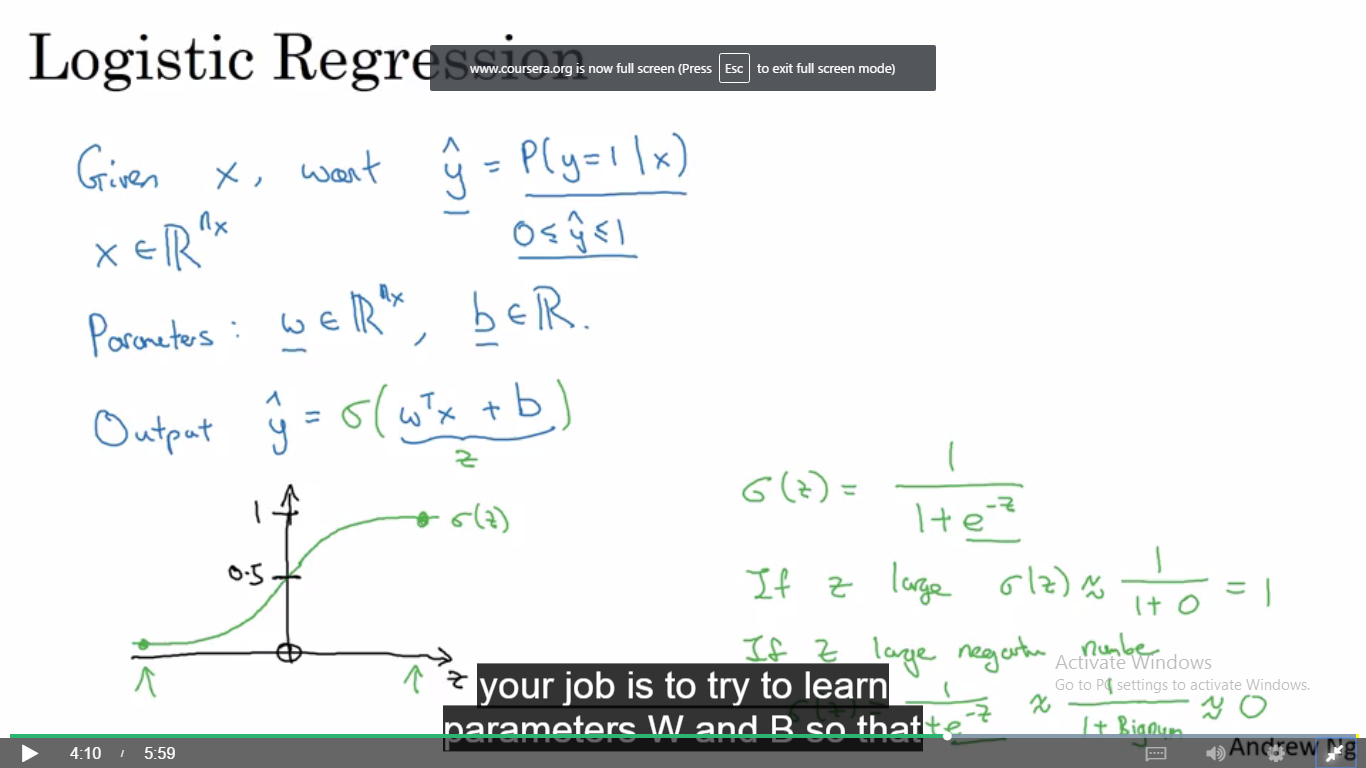 Logistic Regression
www.coursera.org is now full screen (Press Esc to exit full screen mode)
Given x, want ŷ = P(y=1|x)
0 ≤ ŷ ≤ 1
x ∈ ℝⁿˣ
Parameters: w ∈ ℝⁿˣ, b ∈ ℝ.
Output ŷ = σ(wᵀx + b)
z
1
σ(z)
0.5
z
σ(z) = 1 / (1 + e^-z)
If z large σ(z) ≈ 1 / (1 + 0) = 1
If z large negative number
σ(z) = 1 / (1 + e^-z) ≈ 1 / (1 + Bignum) ≈ 0
Activate Windows
Go to PC settings to activate Windows.
your job is to try to learn
parameters W and B so that
4:10 / 5:59
Andrew Ng